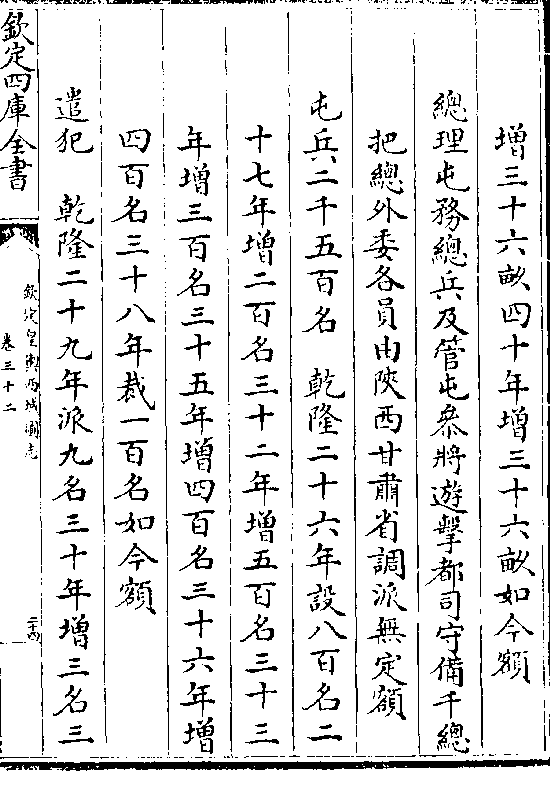 增三十六畝四十年增三十六畝如今額
總理屯務總兵及管屯叅將遊擊都司守備千總
把總外委各員由陝西甘肅省調派無定額
屯兵二千五百名 乾隆二十六年設八百名二
十七年增二百名三十二年增五百名三十三
年增三百名三十五年增四百名三十六年增
四百名三十八年裁一百名如今額
遣犯 乾隆二十九年派九名三十年增三名三
欽定四庫全書
欽定皇輿西域圖志
卷三十二
二十四